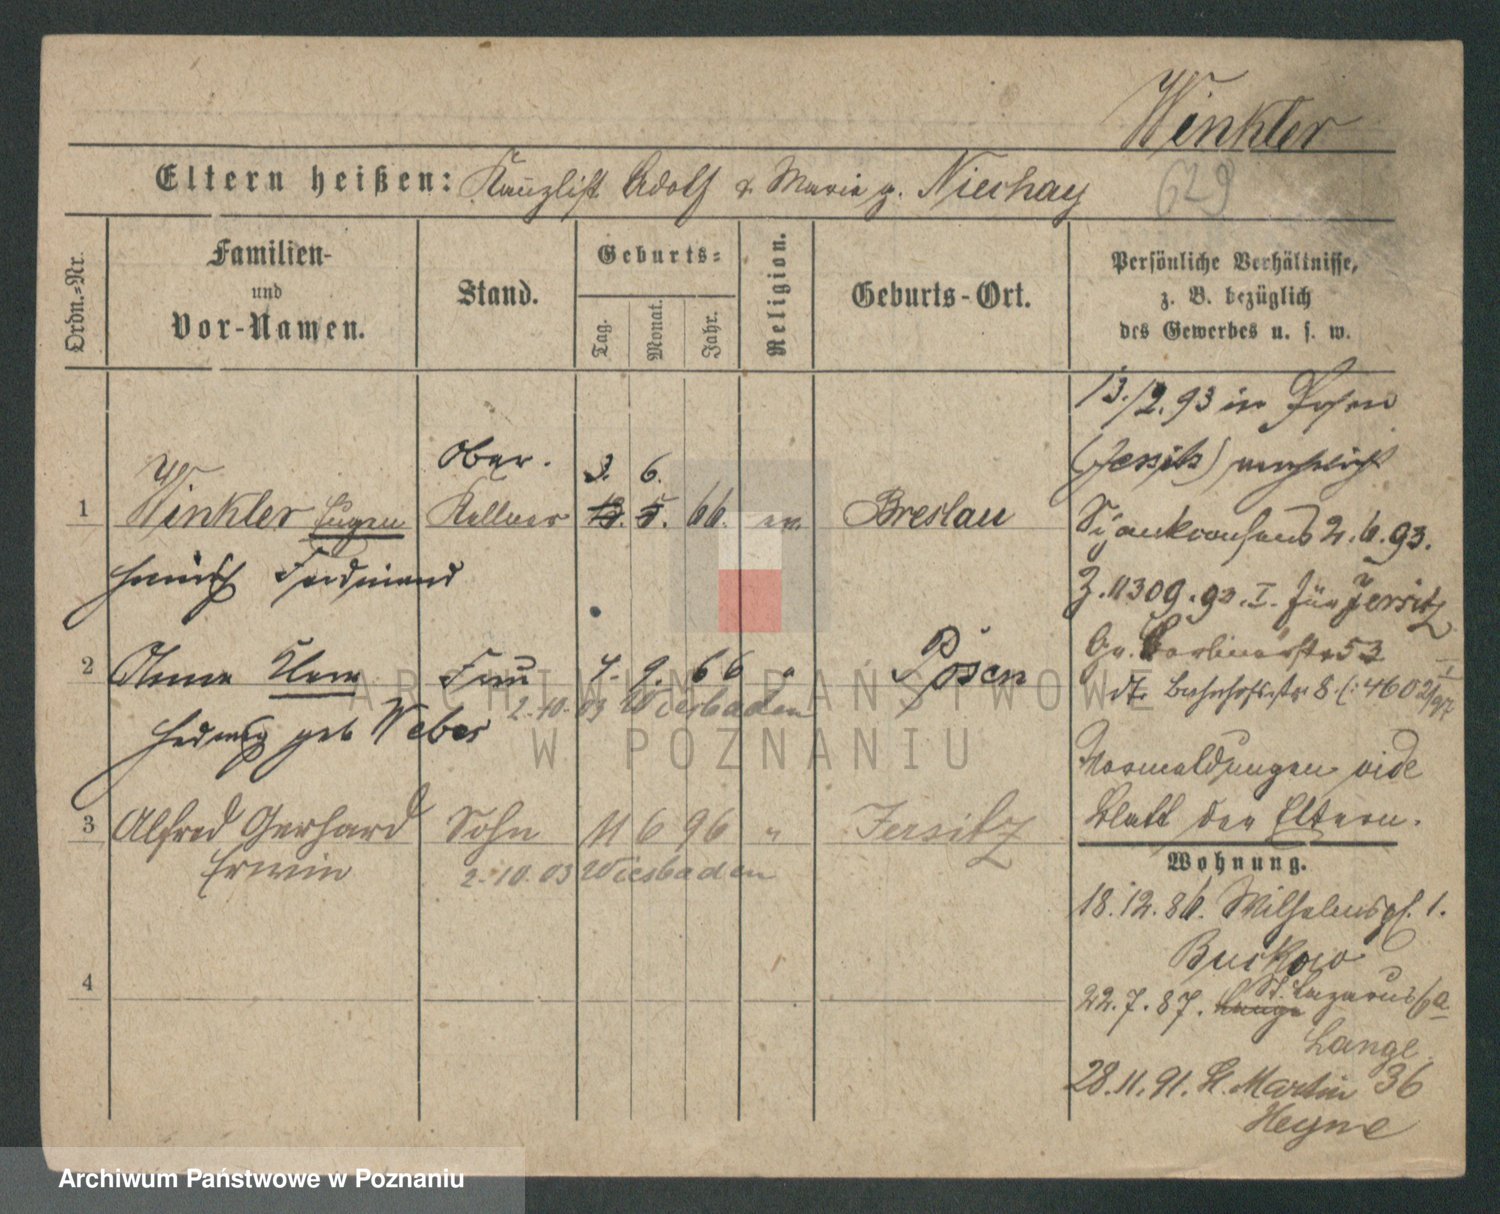 Winkler
629
Eltern heißen: Kanzlist Adolf & Marie g. Niechay
Ordn.-Nr.
Familien-
und
Vor-Namen.
Stand.
Geburts-
Tag.
Monat.
Jahr.
Religion.
Geburts-Ort.
Persönliche Verhältnisse,
z. B. bezüglich
des Gewerbes u. s. w.
13./2.93 in Posen
(Jersitz) verehelicht
2.6.93.
Z. 11309.93.I. für Jersitz
53
dt. Bahnhofstr 8
Vormeldungen vide
Blatt der Eltern.
Ober-
3. 6.
1 Winkler Eugen Kellner 13. 5. 66. ev. Breslau
Heinrich Ferdinand
2 Anna Clara Frau 7. 9. 66 " Posen
2.10.03 Wiesbaden
Hedwig geb Weber
3 Alfred Gerhard Sohn 11 6 96 " Jersitz
Erwin
2.10.03 Wiesbaden
4
Wohnung.
18.12.86. Wilhelmspl. 1.
Buckow
22.7.87. Lange St. Lazarus 6a
Lange
28.11.91. St. Martin 36
Heyne
ARCHIWUM PAŃSTWOWE
W POZNANIU
Archiwum Państwowe w Poznaniu